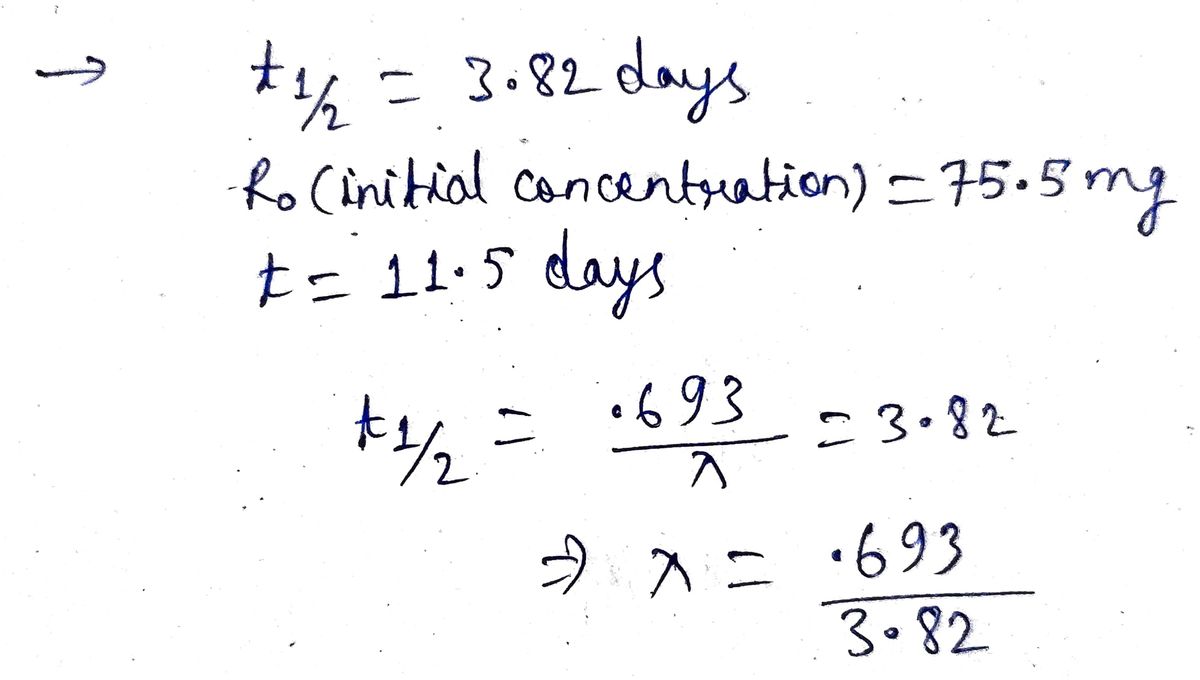 → t1/2 = 3.82 days
R₀ (initial concentration) = 75.5 mg
t = 11.5 days
t1/2 = .693/λ = 3.82
⇒ λ = .693/3.82